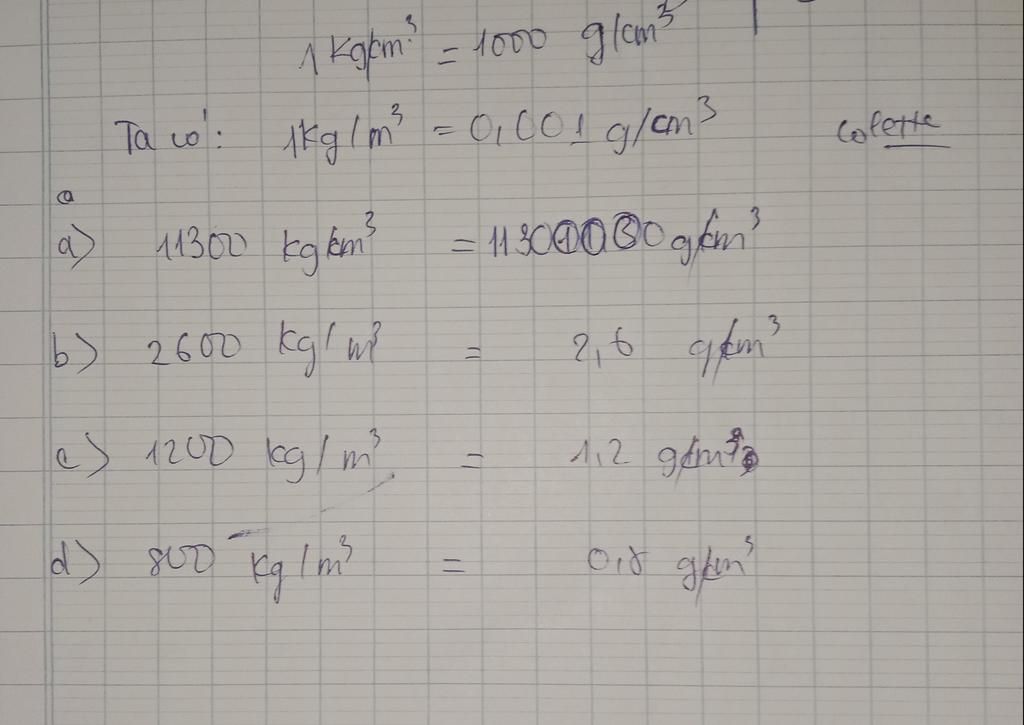 1 Kg/cm³ = 1000 g/cm³
Ta có: 1Kg/m³ = 0,001 g/cm³ Colette
a
a) 11300 kg/cm³ = 11300000 g/cm³
b) 2600 kg/m³ = 2,6 g/cm³
c) 1200 kg/m³ = 1,2 g/cm³
d) 800 kg/m³ = 0,8 g/cm³